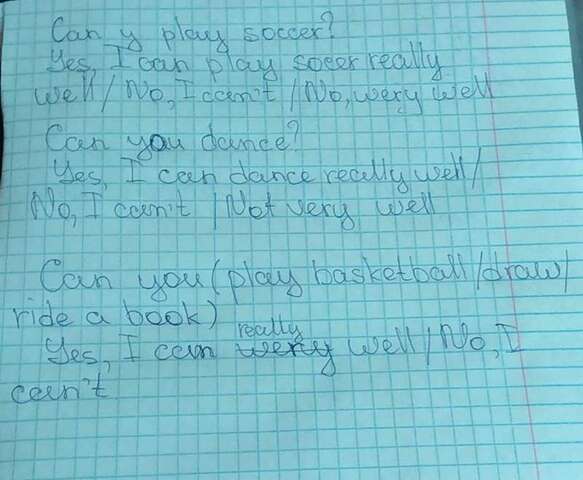 Can y play soccer?
Yes, I can play socer really
well / No, I can't / No, wery well
Can you dance?
Yes, I can dance really well /
No, I can't / Not very well
Can you (play basketball / draw /
ride a book)
Yes, I can wery really well / No, I
can't